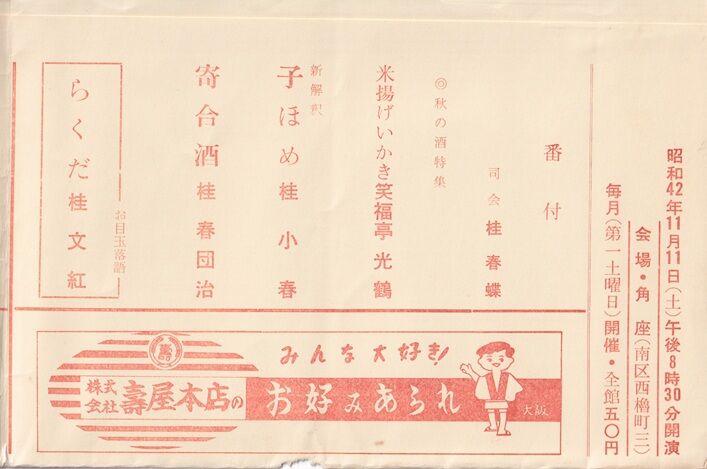 昭和42年11月11日(土)午後8時30分開演
会場・角座(南区西櫓町一三)
毎月(第一土曜日)開催・全館五〇円
番付
司会 桂春蝶
◎秋の酒特集
米揚げいかき 笑福亭光鶴
新解釈
子ほめ 桂小春
寄合酒 桂春団治
お目玉落語
らくだ 桂文紅
みんな大好き!
株式会社 壽屋本店の
お好みあられ
大阪